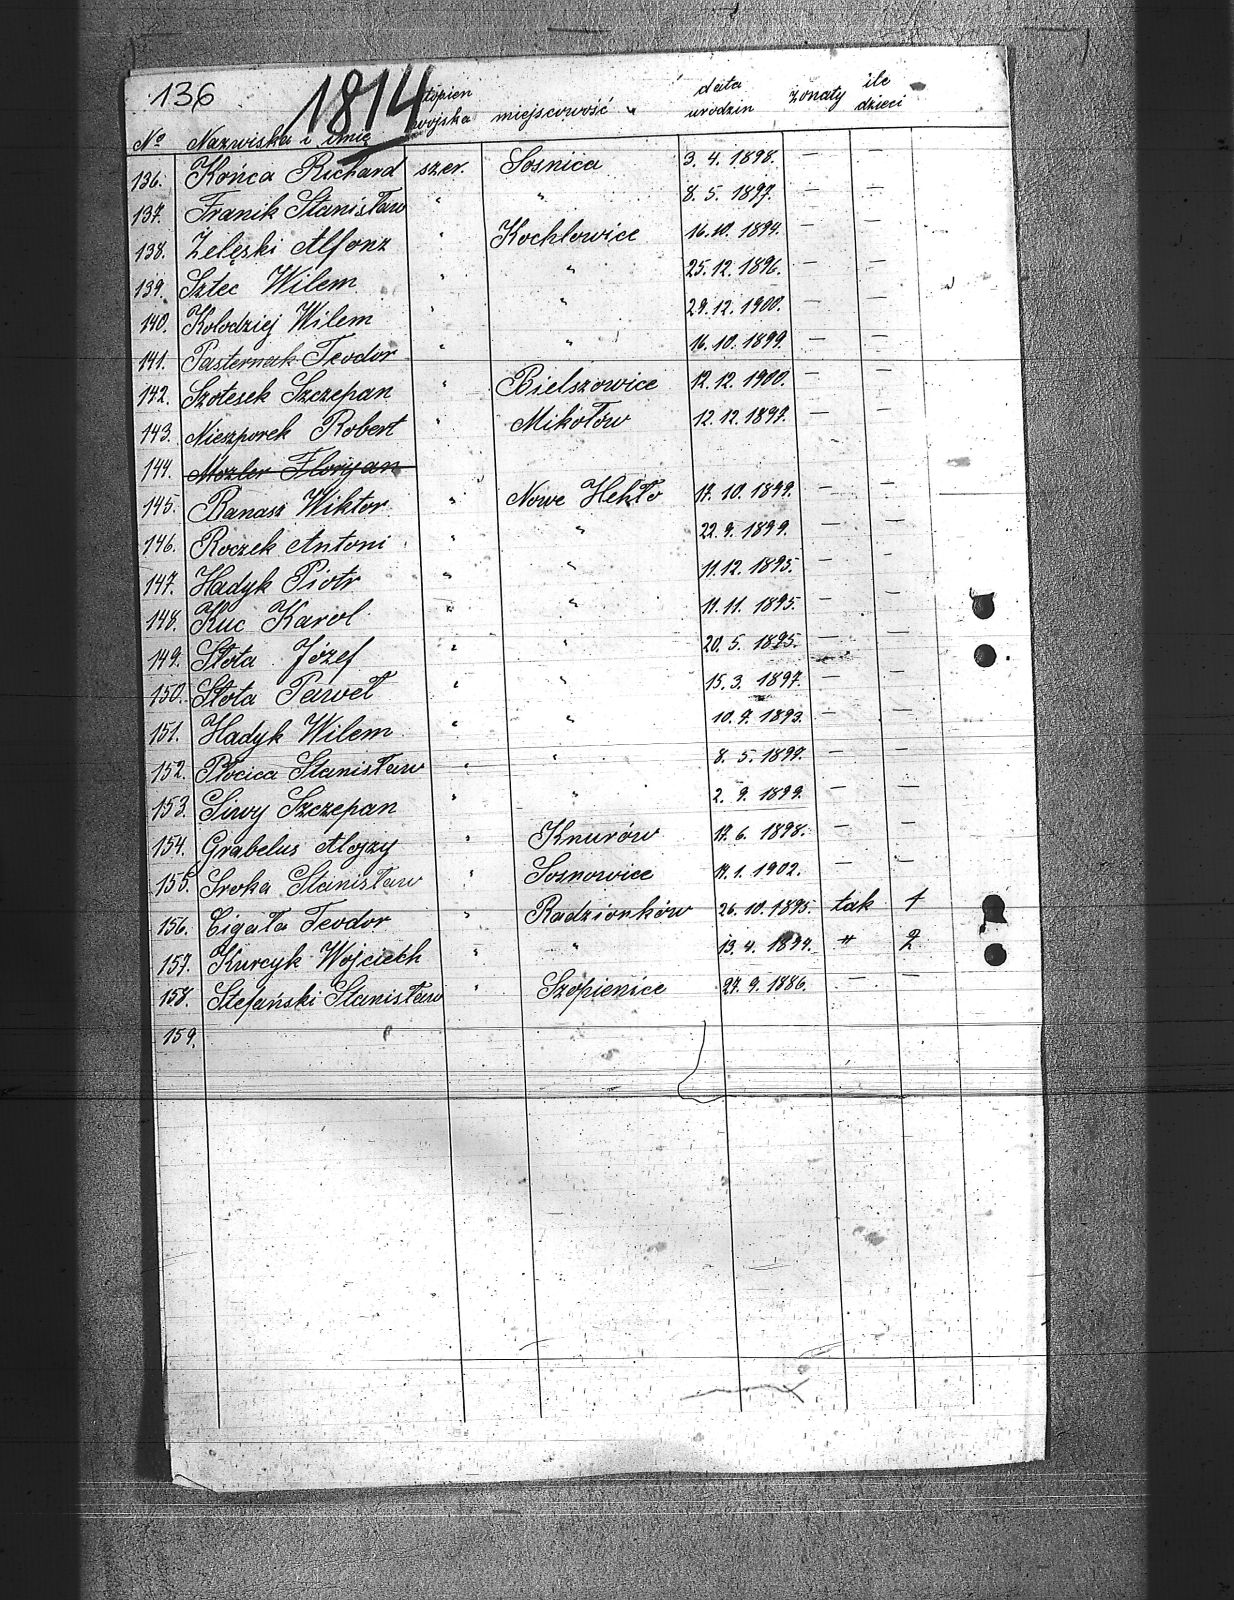 136 1814
No Nazwiska i imię stopien wojska miejscowość data urodzin żonaty ile dzieci
136. Końca Richard szer. Sosnica 3. 4. 1898. — —
137. Franik Stanisław " " 8. 5. 1897. — —
138. Żeleski Alfonz " Kochłowice 16. 10. 1894. — —
139. Sztec Wilem " " 25. 12. 1896. — —
140. Kołodziej Wilem " " 29. 12. 1900. — —
141. Pasternak Teodor " " 16. 10. 1899. — —
142. Szołtesek Szczepan " Bielszowice 12. 12. 1900. — —
143. Nieszporek Robert " Mikołów 12. 12. 1897. — —
144. Mozler Floryan
145. Banasz Wiktor " Nowe Hehło 17. 10. 1899. — —
146. Roczek Antoni " " 22. 9. 1899. — —
147. Hadyk Piotr " " 11. 12. 1895. — —
148. Kuc Karol " " 11. 11. 1895. — —
149. Słota Józef " " 20. 5. 1895. — —
150. Słota Paweł " " 15. 3. 1897. — —
151. Hadyk Wilem " " 10. 9. 1893. — —
152. Płocica Stanisław " " 8. 5. 1899. — —
153. Siwy Szczepan " " 2. 9. 1899. — —
154. Grabelus Alojzy " Knurów 17. 6. 1898. — —
155. Sroka Stanisław " Sosnowice 14. 1. 1902. — —
156. Cigała Teodor " Radzionków 26. 10. 1895. tak 1
157. Kurcyk Wojciech " " 13. 4. 1894. " 2
158. Stefański Stanisław " Szopienice 27. 9. 1886. — —
159.